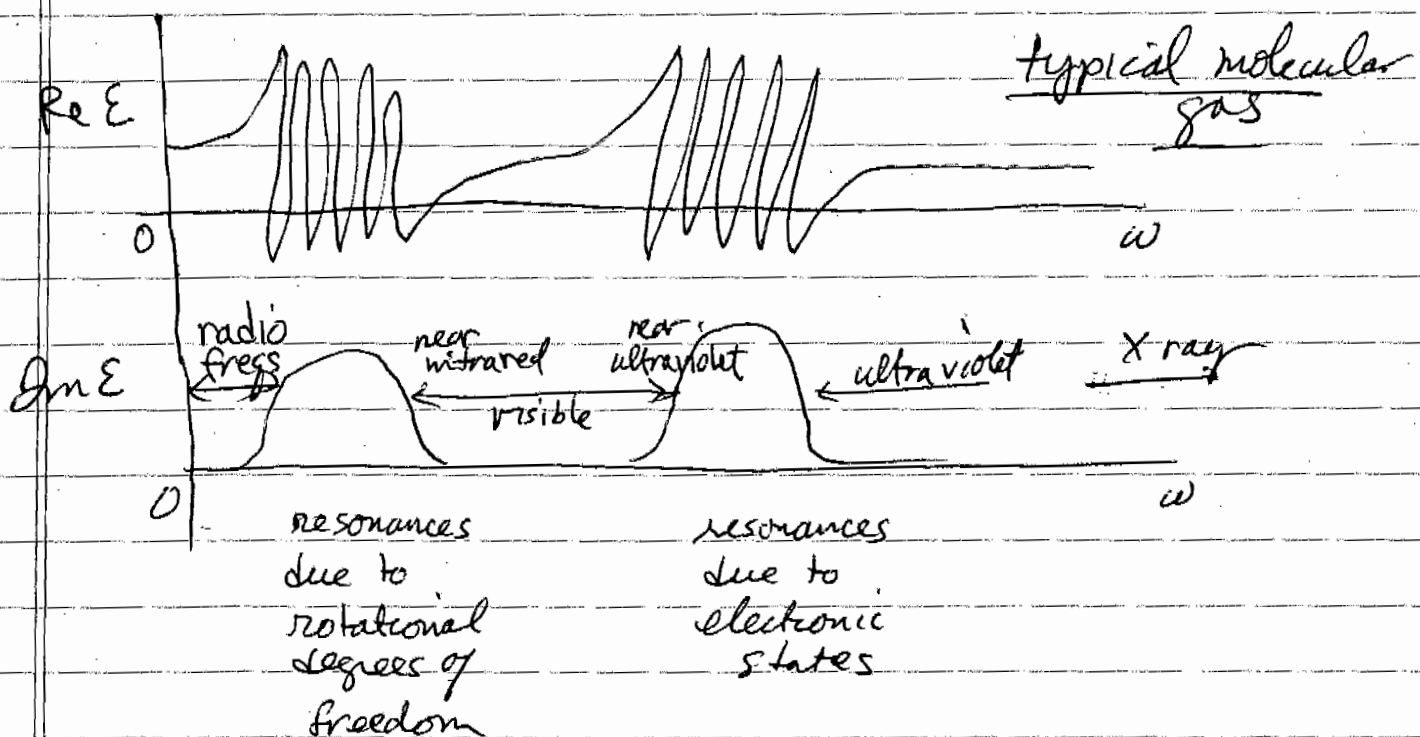 typical molecular
gas
Re ε
0
ω
radio
freqs
near
infrared
visible
near
ultraviolet
ultraviolet
X ray
Im ε
0
ω
resonances
due to
rotational
degrees of
freedom
resonances
due to
electronic
states